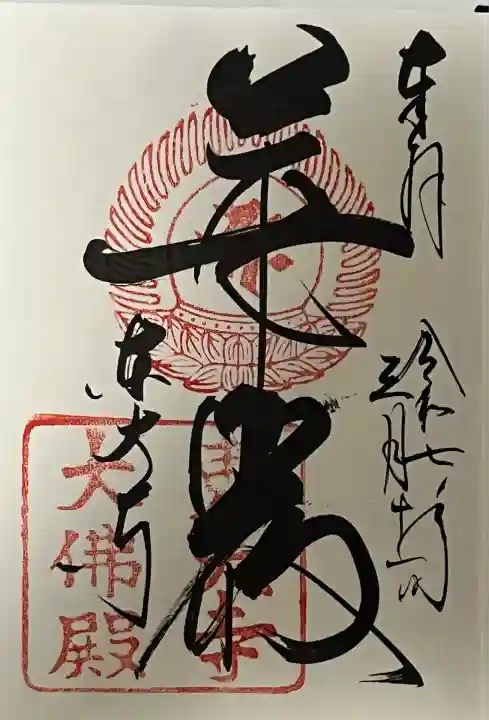 奉拝
令和七年
三月十一日
華厳
東大寺
東大寺
大佛殿